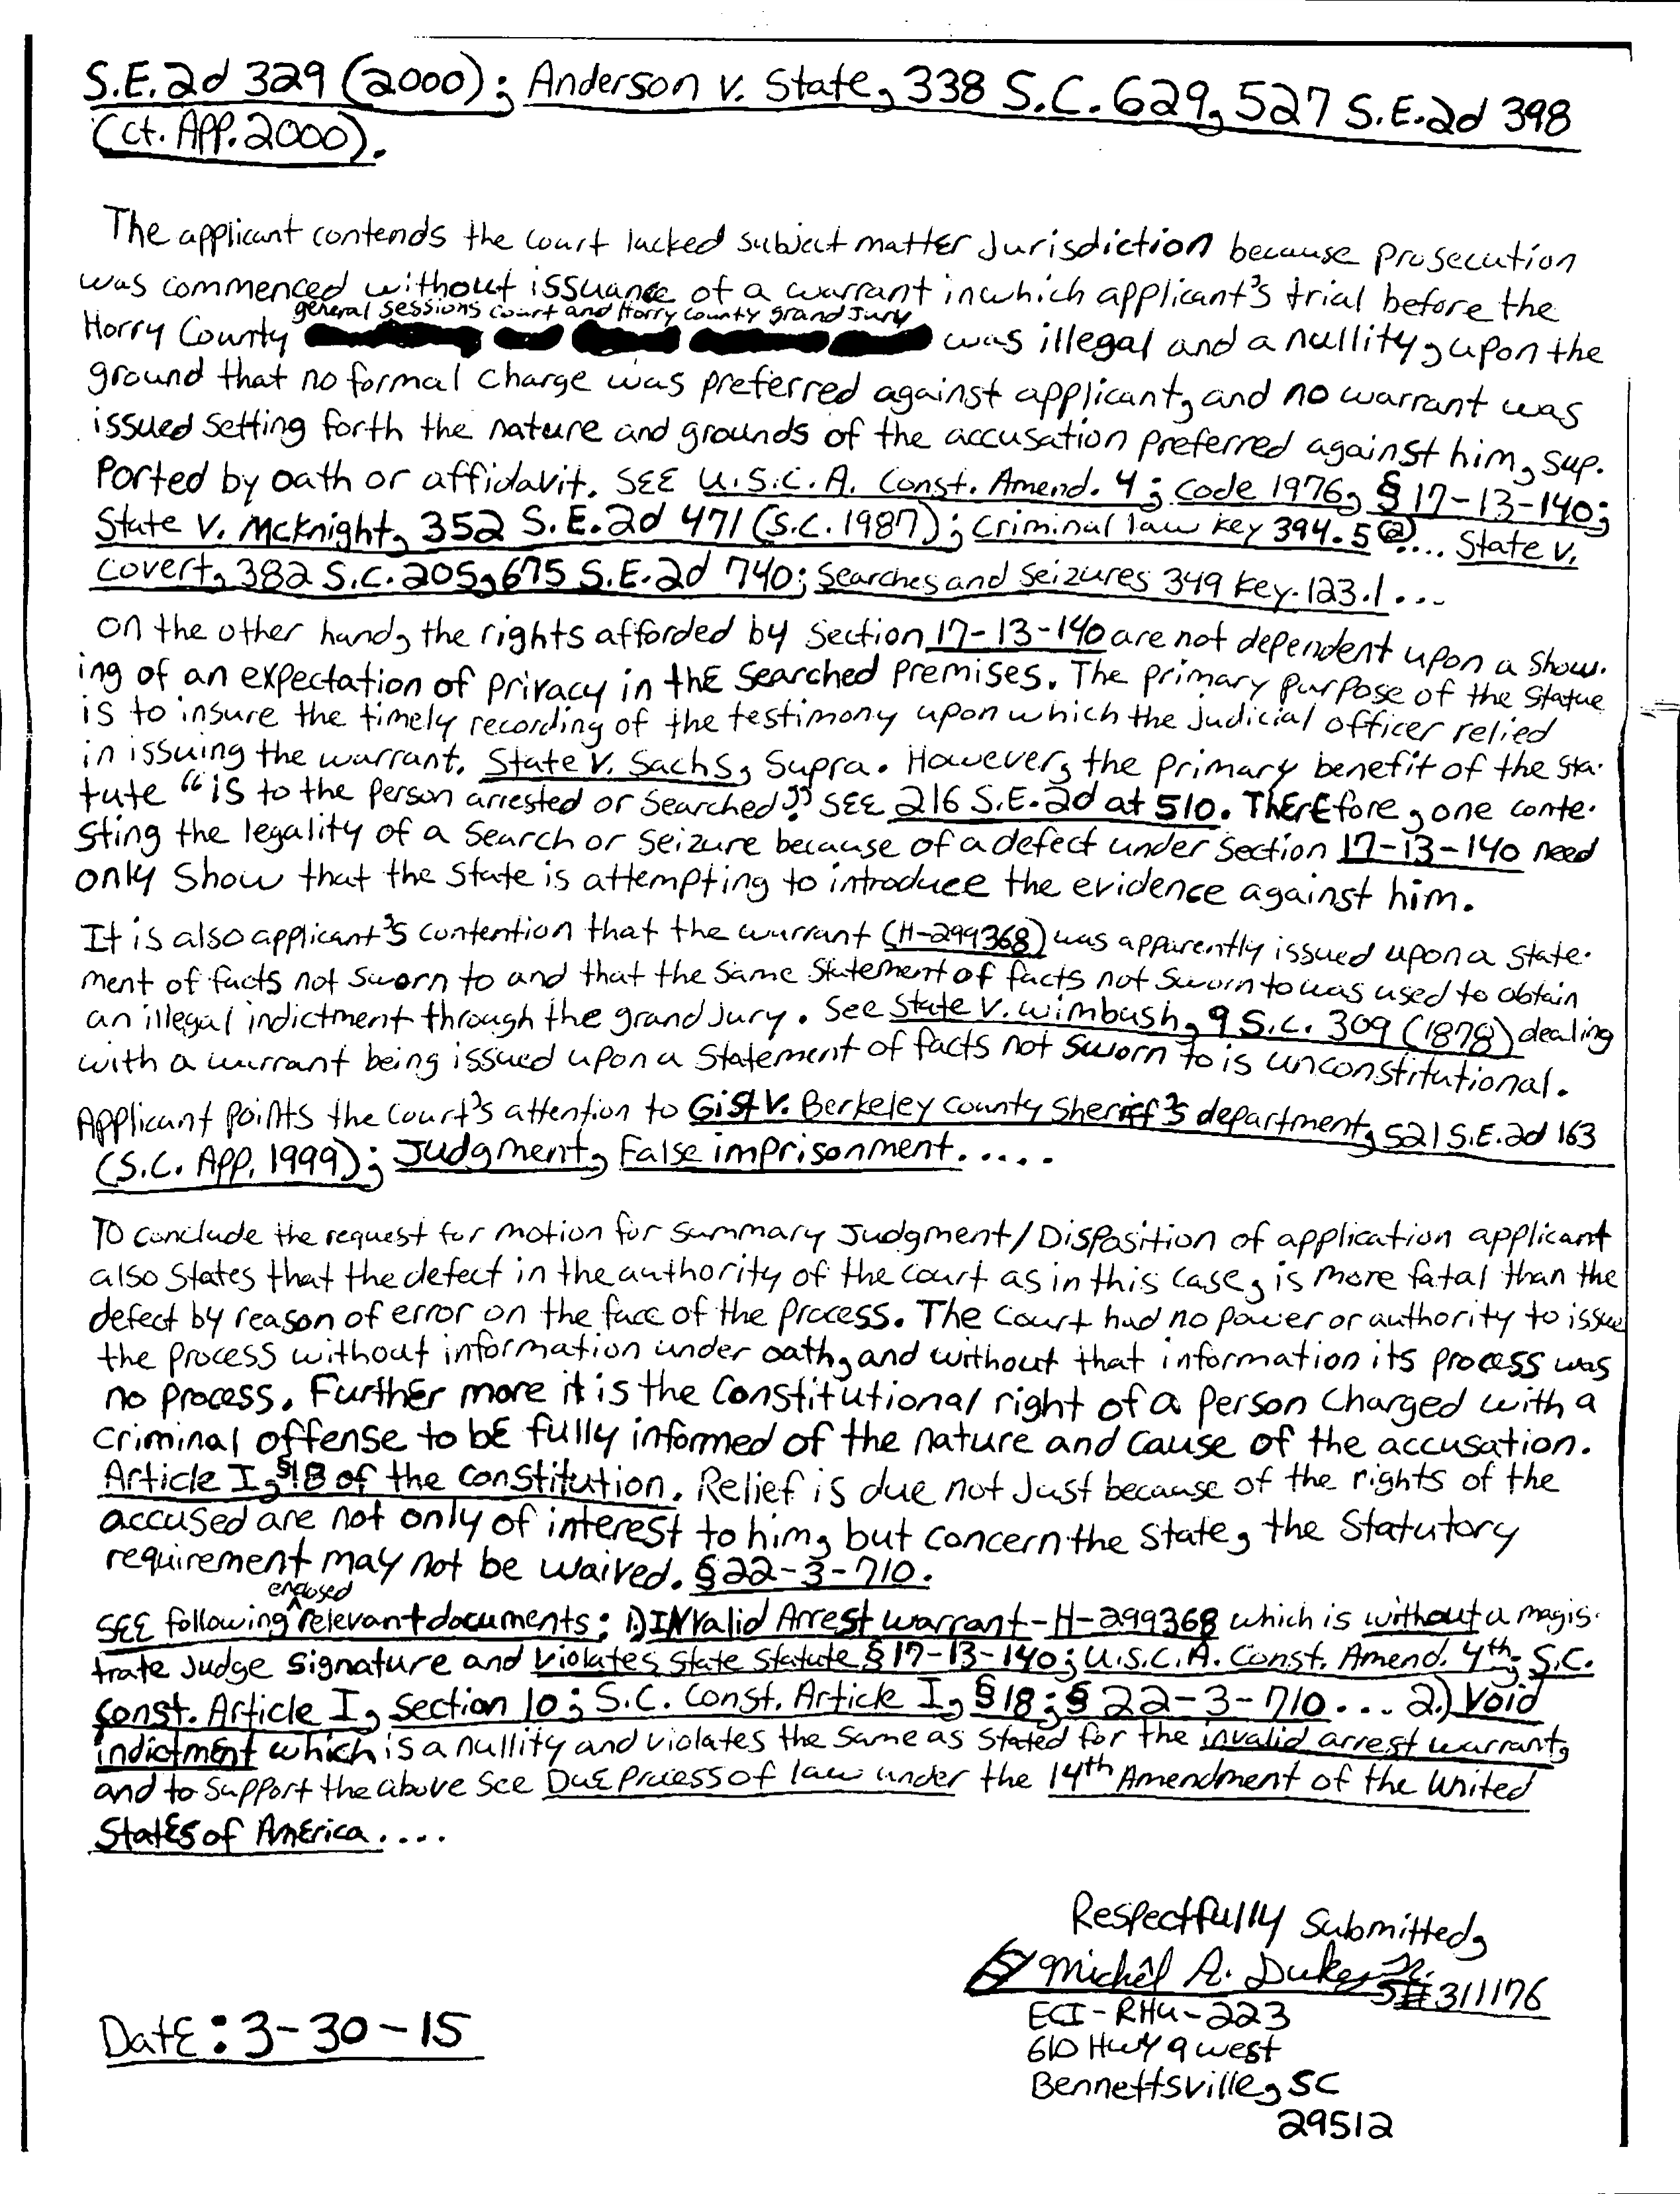 S.E.2d 329 (2000); Anderson v. State, 338 S.C. 629, 527 S.E.2d 398
(Ct. APP. 2000).
The applicant contends the court lacked subject matter Jurisdiction because prosecution
was commenced without issuance of a warrant in which applicant's trial before the
general sessions court and Horry County grand Jury
Horry County was illegal and a nullity, upon the
ground that no formal charge was preferred against applicant, and no warrant was
issued setting forth the nature and grounds of the accusation preferred against him, sup-
Ported by oath or affidavit. SEE U.S.C.A. Const. Amend. 4; Code 1976, § 17-13-140;
State V. McKnight, 352 S.E.2d 471 (S.C. 1987); Criminal law Key 394.5(2).... State v.
Covert, 382 S.C. 205, 675 S.E.2d 740; Searches and Seizures 349 Key.123.1...
On the other hand, the rights afforded by Section 17-13-140 are not dependent upon a show-
ing of an expectation of privacy in the searched premises. The primary purpose of the statue
is to insure the timely recording of the testimony upon which the judicial officer relied
in issuing the warrant. State V. Sachs, Supra. However, the primary benefit of the sta-
tute "is to the person arrested or searched." SEE 216 S.E.2d at 510. Therefore, one conte-
sting the legality of a search or seizure because of a defect under Section 17-13-140 need
only show that the State is attempting to introduce the evidence against him.
It is also applicant's contention that the warrant (H-299368) was apparently issued upon a state-
ment of facts not sworn to and that the same statement of facts not sworn to was used to obtain
an illegal indictment through the grand jury. See State V. Wimbush, 9 S.C. 309 (1878) dealing
with a warrant being issued upon a statement of facts not sworn to is unconstitutional.
Applicant points the court's attention to Gist V. Berkeley County Sheriff's department, 521 S.E.2d 163
(S.C. App. 1999); Judgment, False imprisonment.....
To conclude the request for motion for summary Judgment/Disposition of application applicant
also states that the defect in the authority of the court as in this case, is more fatal than the
defect by reason of error on the face of the process. The Court had no power or authority to issue
the process without information under oath, and without that information its process was
no process. Further more it is the constitutional right of a person charged with a
criminal offense to be fully informed of the nature and cause of the accusation.
Article I, §18 of the constitution. Relief is due not just because of the rights of the
accused are not only of interest to him, but concern the State, the Statutory
requirement may not be waived. § 22-3-710.
enclosed
SEE following relevant documents: 1.) INvalid Arrest warrant-H-299368 which is without a magis-
trate Judge signature and violates State Statute § 17-13-140; U.S.C.A. Const. Amend. 4th; S.C.
Const. Article I, Section 10; S.C. Const. Article I, § 18; § 22-3-710... 2.) Void
indictment which is a nullity and violates the same as stated for the invalid arrest warrant,
and to support the above see Due Process of law under the 14th Amendment of the United
States of America....
Respectfully Submitted,
Michel A. Dukes Jr.
S# 311176
ECI-RHU-223
610 Hwy 9 west
Bennettsville, SC
29512
Date: 3-30-15